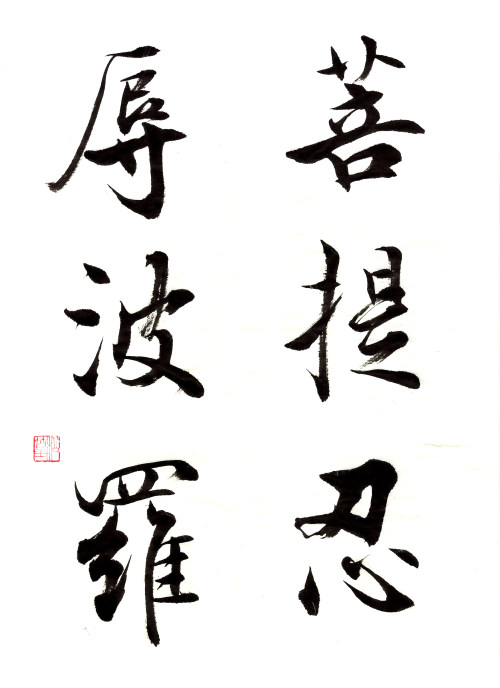 菩提忍
辱波羅